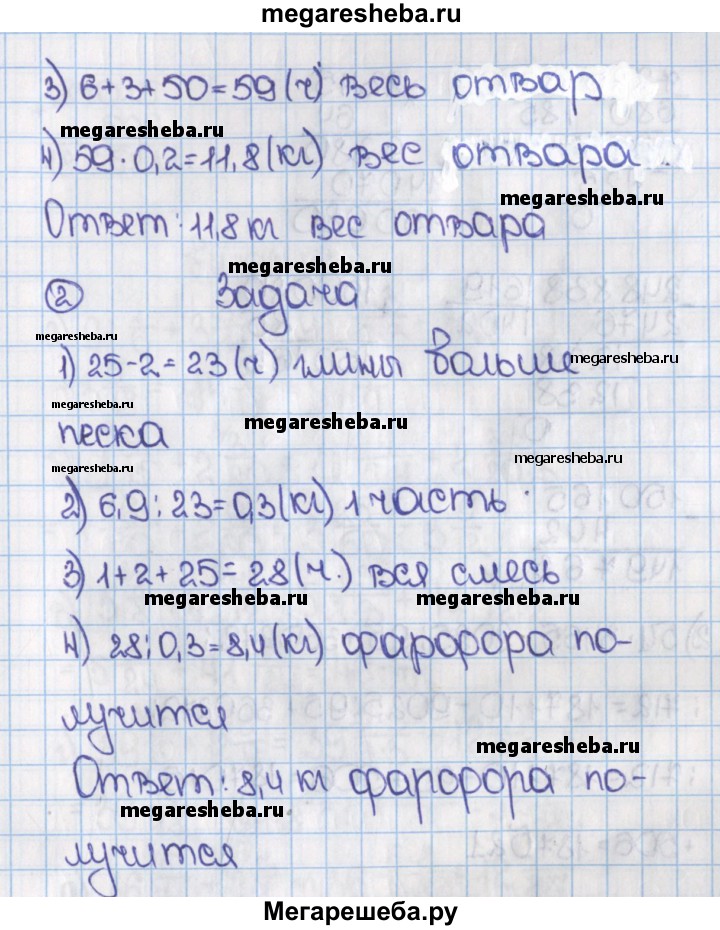 megaresheba.ru
3) 6+3+50=59(ч) весь отвар
megaresheba.ru
4) 59·0,2=11,8(кг) вес отвара.
megaresheba.ru
Ответ: 11,8 кг вес отвара
megaresheba.ru
2 Задача
megaresheba.ru
1) 25-2=23(ч) глины больше
megaresheba.ru
megaresheba.ru
песка
megaresheba.ru
megaresheba.ru
megaresheba.ru
2) 6,9:23=0,3(кг) 1 часть.
3) 1+2+25=28(ч.) вся смесь
megaresheba.ru megaresheba.ru
4) 28:0,3=8,4(кг) фарфора по-
лучится
megaresheba.ru
Ответ: 8,4 кг фарфора по-
megaresheba.ru
лучится
Мегарешеба.ру